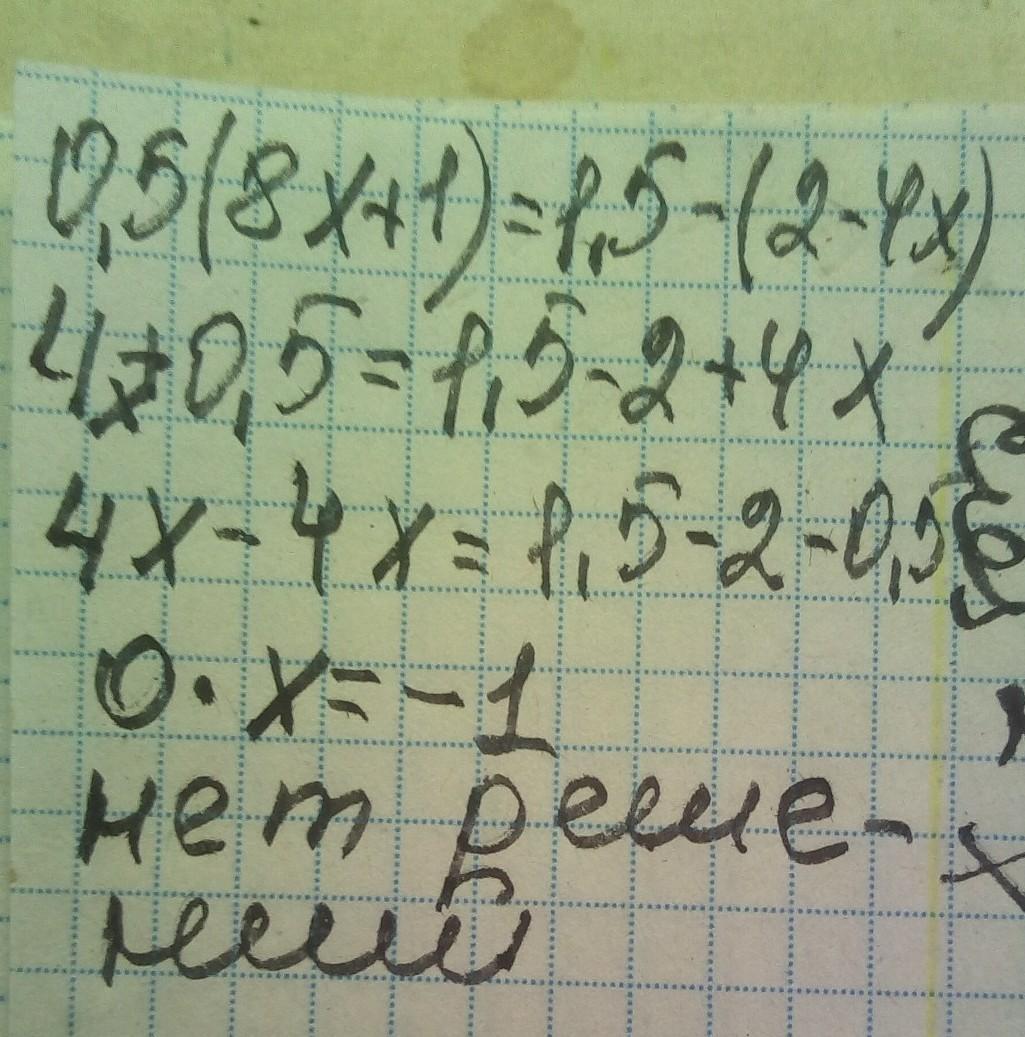 0,5(8x+1)=1,5-(2-4x)
4x+0,5=1,5-2+4x
4x-4x=1,5-2-0,5
0·x=-1
нет реше-
ний